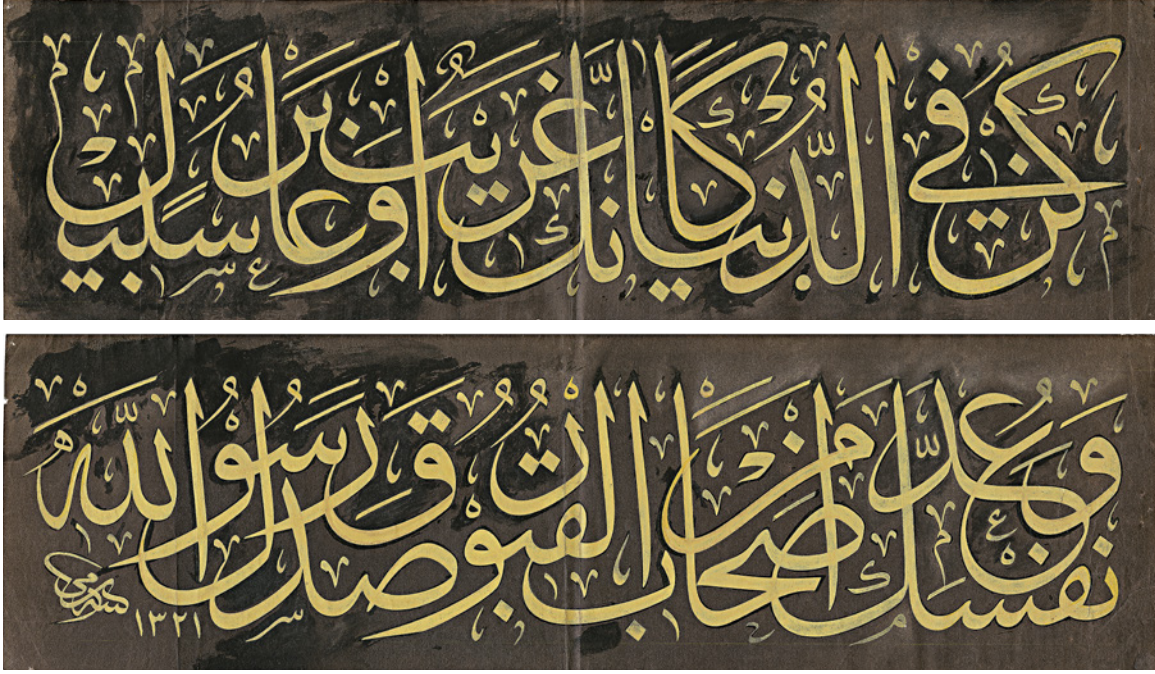 كن في الدنيا كأنك غريب أو عابر سبيل
وعد نفسك من أصحاب القبور صدق رسول الله
١٣٢١